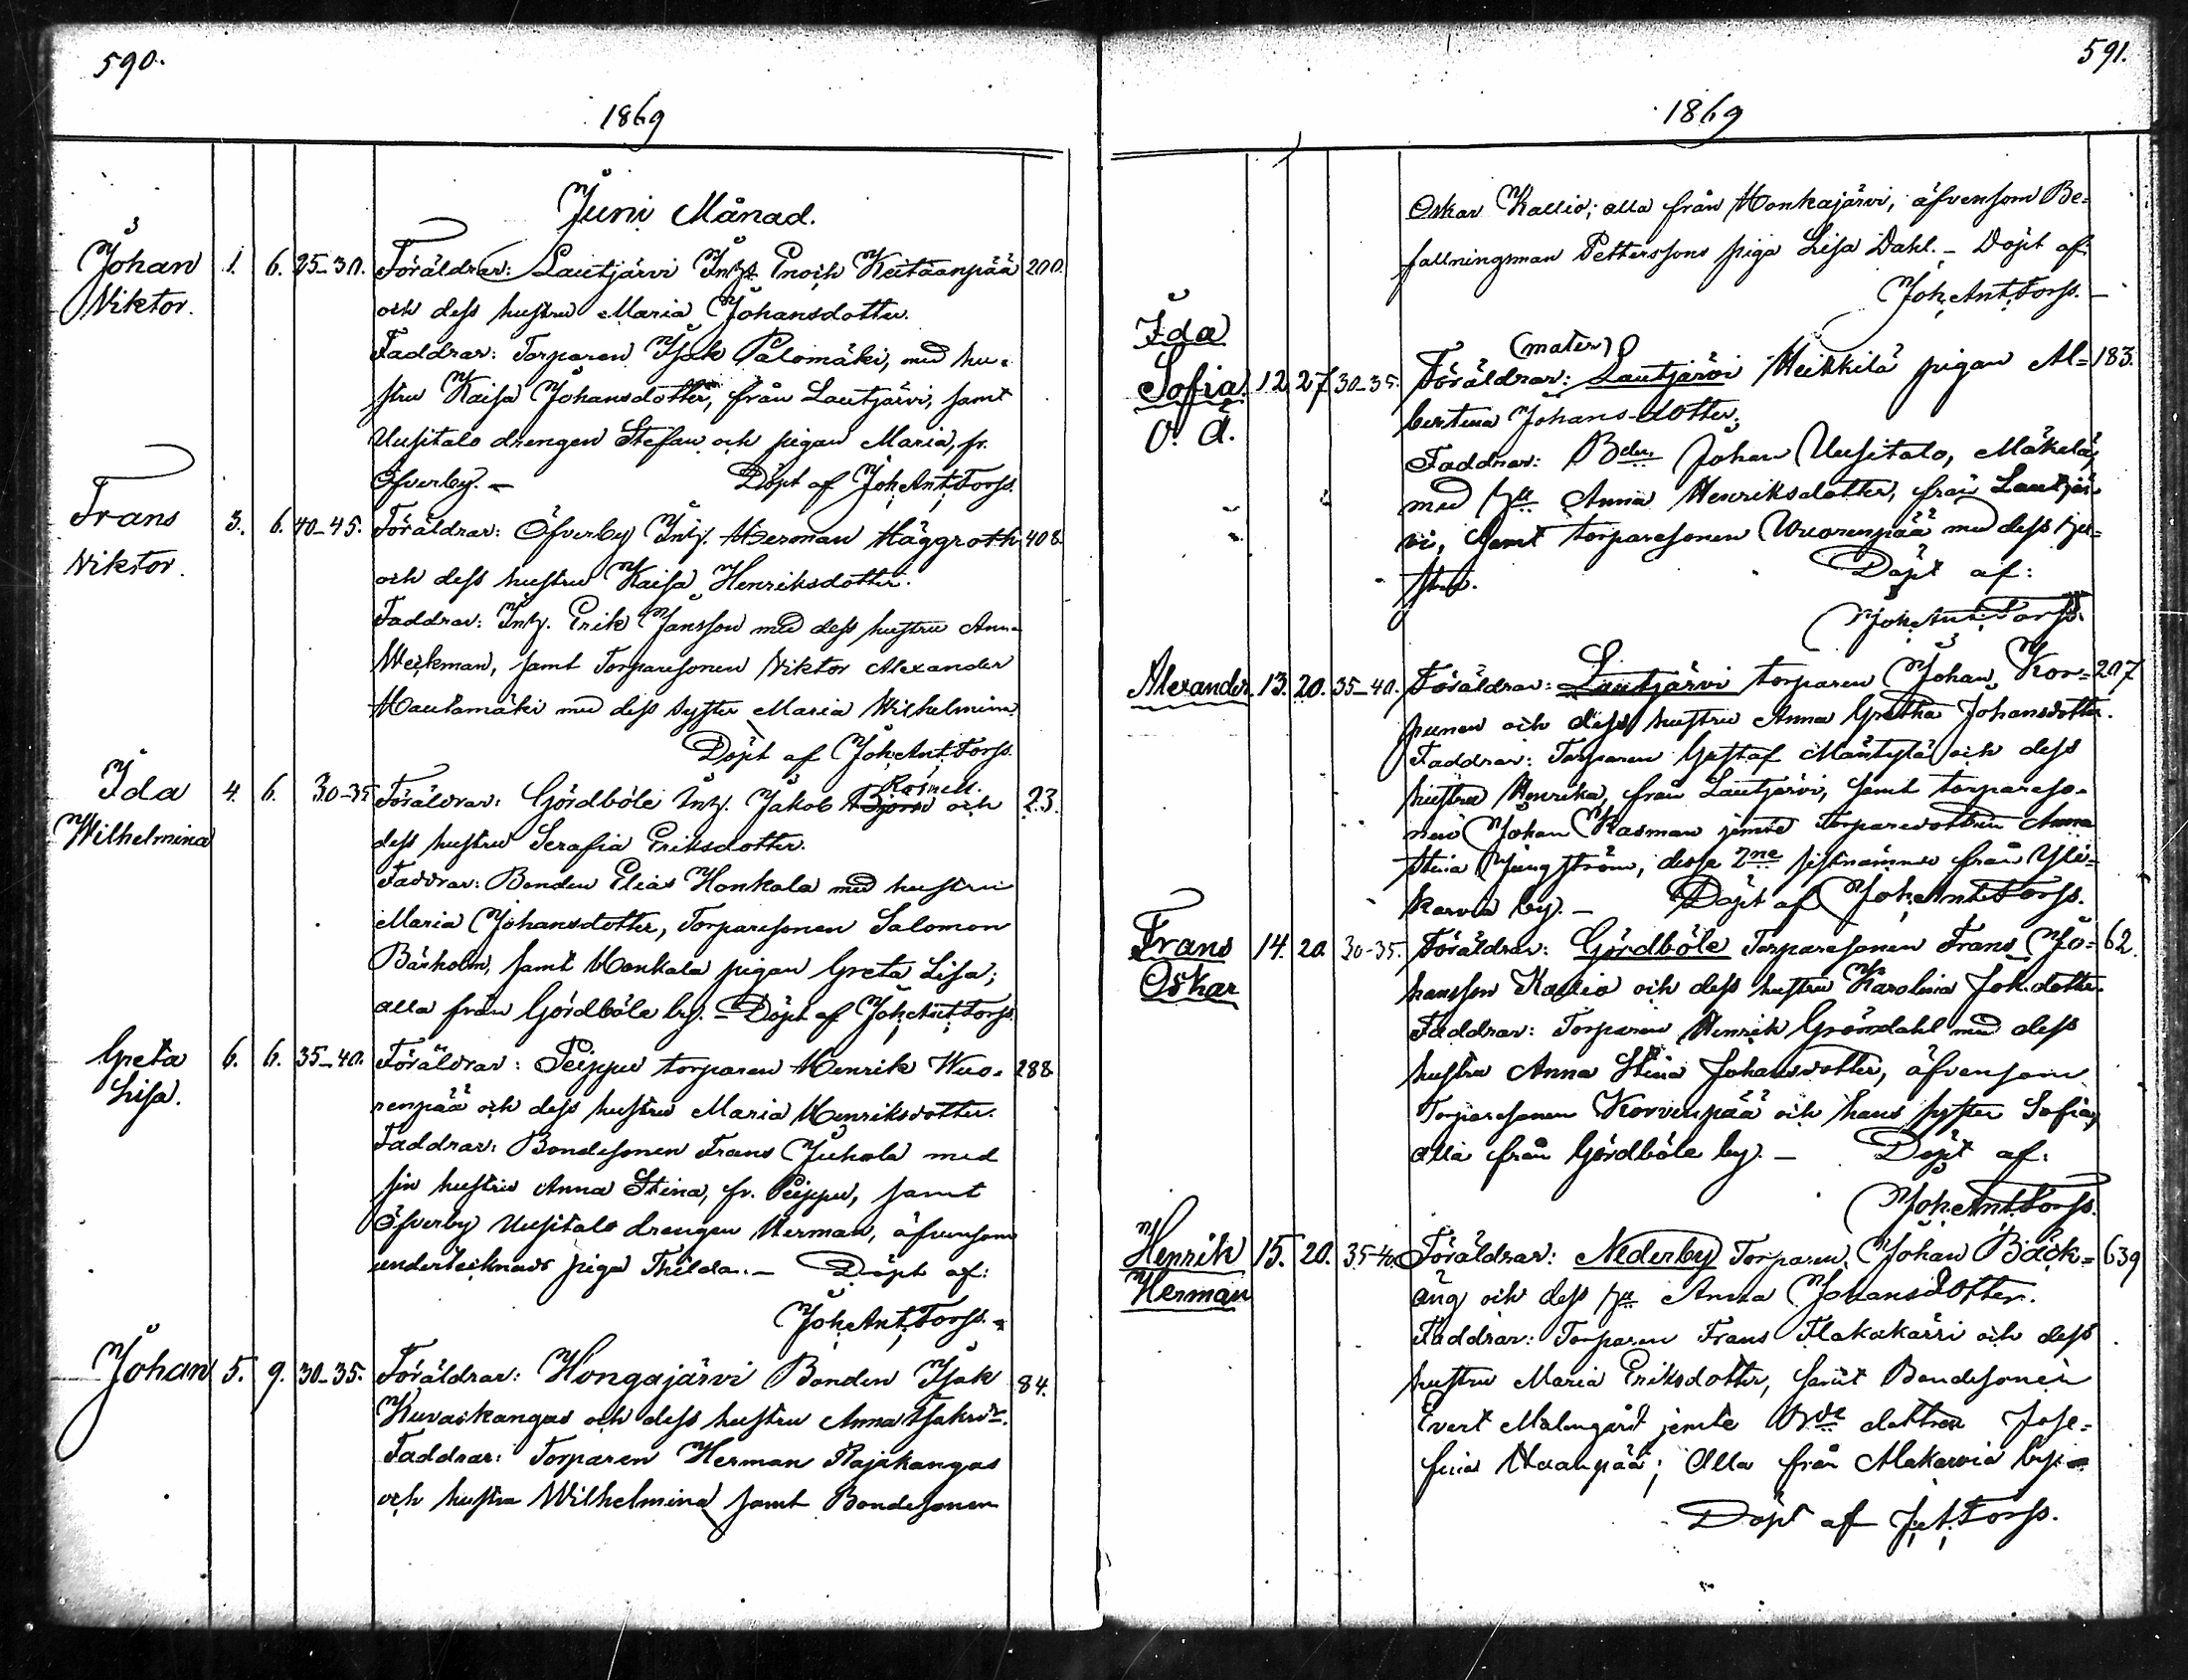 590.
1869
Juni Månad.
Johan Viktor. 1. 6. 25-30. Föräldrar: Lautjärvi Inhs. Enoch Keitaanpää 200.
och dess hustru Maria Johansdotter.
Faddrar: Torparen Isak Palomäki, med hu-
stru Kaisa Johansdotter, från Lautjärvi, samt
Uusitalo drengen Stefan och pigan Maria, fr.
Öfverby. – Döpt af Joh. Ant. Forss.
Frans Viktor. 3. 6. 40-45. Föräldrar: Öfverby Inh. Herman Häggroth 408
och dess hustru Kaisa Henriksdotter.
Faddrar: Inh. Erik Jansson med dess hustru Anna
Weckman, samt Torparesonen Viktor Alexander
Hautamäki med dess syster Maria Wilhelmina.
Döpt af Joh. Ant. Forss.
Ida Wilhelmina 4. 6. 30-35 Föräldrar: Gördböle Inh. Jakob Rosnell och 23.
dess hustru Serafia Eriksdotter.
Faddrar: Bonden Elias Honkala med hustru
Maria Johansdotter, Torparesonen Salomon
Bärholm, samt Honkala pigan Greta Lisa;
alla från Gördböle by. – Döpt af Joh. Ant. Forss.
Greta Lisa. 6. 6. 35-40. Föräldrar: Peippu torparen Henrik Wuo- 288
renpää och dess hustru Maria Henriksdotter.
Faddrar: Bondesonen Frans Juhola med
sin hustru Anna Stina, fr. Peippu, samt
Öfverby Uusitalo drengen Herman, äfvensom
undertecknads piga Thilda. – Döpt af:
Joh. Ant. Forss. –
Johan 5. 9. 30-35. Föräldrar: Hongajärvi Bonden Isak 84.
Kuvaskangas och dess hustru Anna Isaksdr.
Faddrar: Torparen Herman Rajakangas
och hustru Wilhelmina samt Bondesonen
591.
1869
Oskar Kallio; alla från Honkajärvi, äfvensom Be-
fallningsman Petterssons piga Lisa Dahl. – Döpt af
Joh. Ant. Forss. –
(mater)
Ida Sofia. O. Ä. 12. 27 30-35. Föräldrar: Lautjärvi Heikkilä pigan Al- 183.
bertina Johans-dotter.
Faddrar: Bden Johan Uusitalo, Mäkelä,
med hu Anna Henriksdotter, från Lautjär-
vi, samt torparesonen Wuorenpää med dess hu-
stru. Döpt af:
Joh. Ant. Forss.
Alexander. 13. 20. 35-40. Föräldrar: Lautjärvi torparen Johan Kor- 207
punen och dess hustru Anna Gretha Johansdotter.
Faddrar: Torparen Gustaf Mäntylä och dess
hustru Henrika, från Lautjärvi, samt torpareso-
nen Johan Rasman jemte Torparedottren Anna
Stina Ljungström, dessa 2ne sistnämnde från Yli-
karvia by. – Döpt af Joh. Ant. Forss.
Frans Oskar 14. 20. 30-35. Föräldrar: Gördböle Torparesonen Frans Jo- 62.
hansson Kallio och dess hustru Karolina Joh.dotter.
Faddrar: Torparen Henrik Gröndahl med dess
hustru Anna Stina Johansdotter, äfvensom
Torparesonen Korvenpää och hans syster Sofia,
alla från Gördböle by. – Döpt af:
Joh. Ant. Forss.
Henrik Herman 15. 20. 35-40 Föräldrar: Nederby Torparen Johan Bäck- 639
äng och dess hu Anna Johansdotter.
Faddrar: Torparen Frans Flakakärri och dess
hustru Maria Eriksdotter, samt Bondesonen
Evert Malmgård jemte Bde dottren Jose-
fina Haanpää; Alla från Alakarvia by. –
Döpt af J. A. Forss.